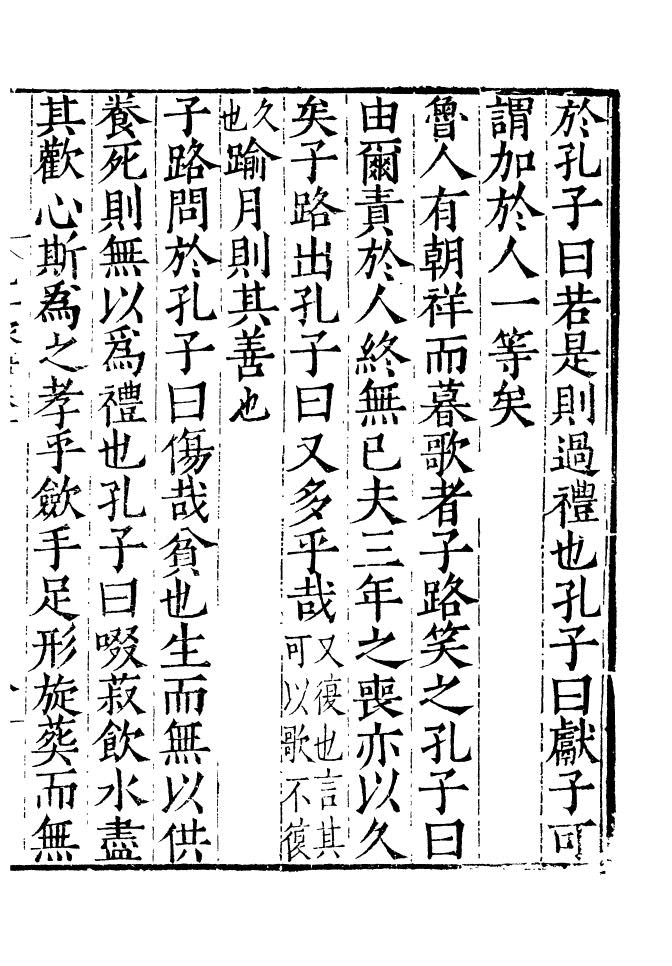 於孔子曰若是則過禮也孔子曰獻子可
謂加於人一等矣
魯人有朝祥而暮歌者子路笑之孔子曰
由爾責於人終無已夫三年之喪亦以久
矣子路出孔子曰又多乎哉又復也言其可以歌不復
久也踰月則其善也
子路問於孔子曰傷哉貧也生而無以供
養死則無以爲禮也孔子曰啜菽飲水盡
其歡心斯爲之孝乎斂手足形旋葬而無